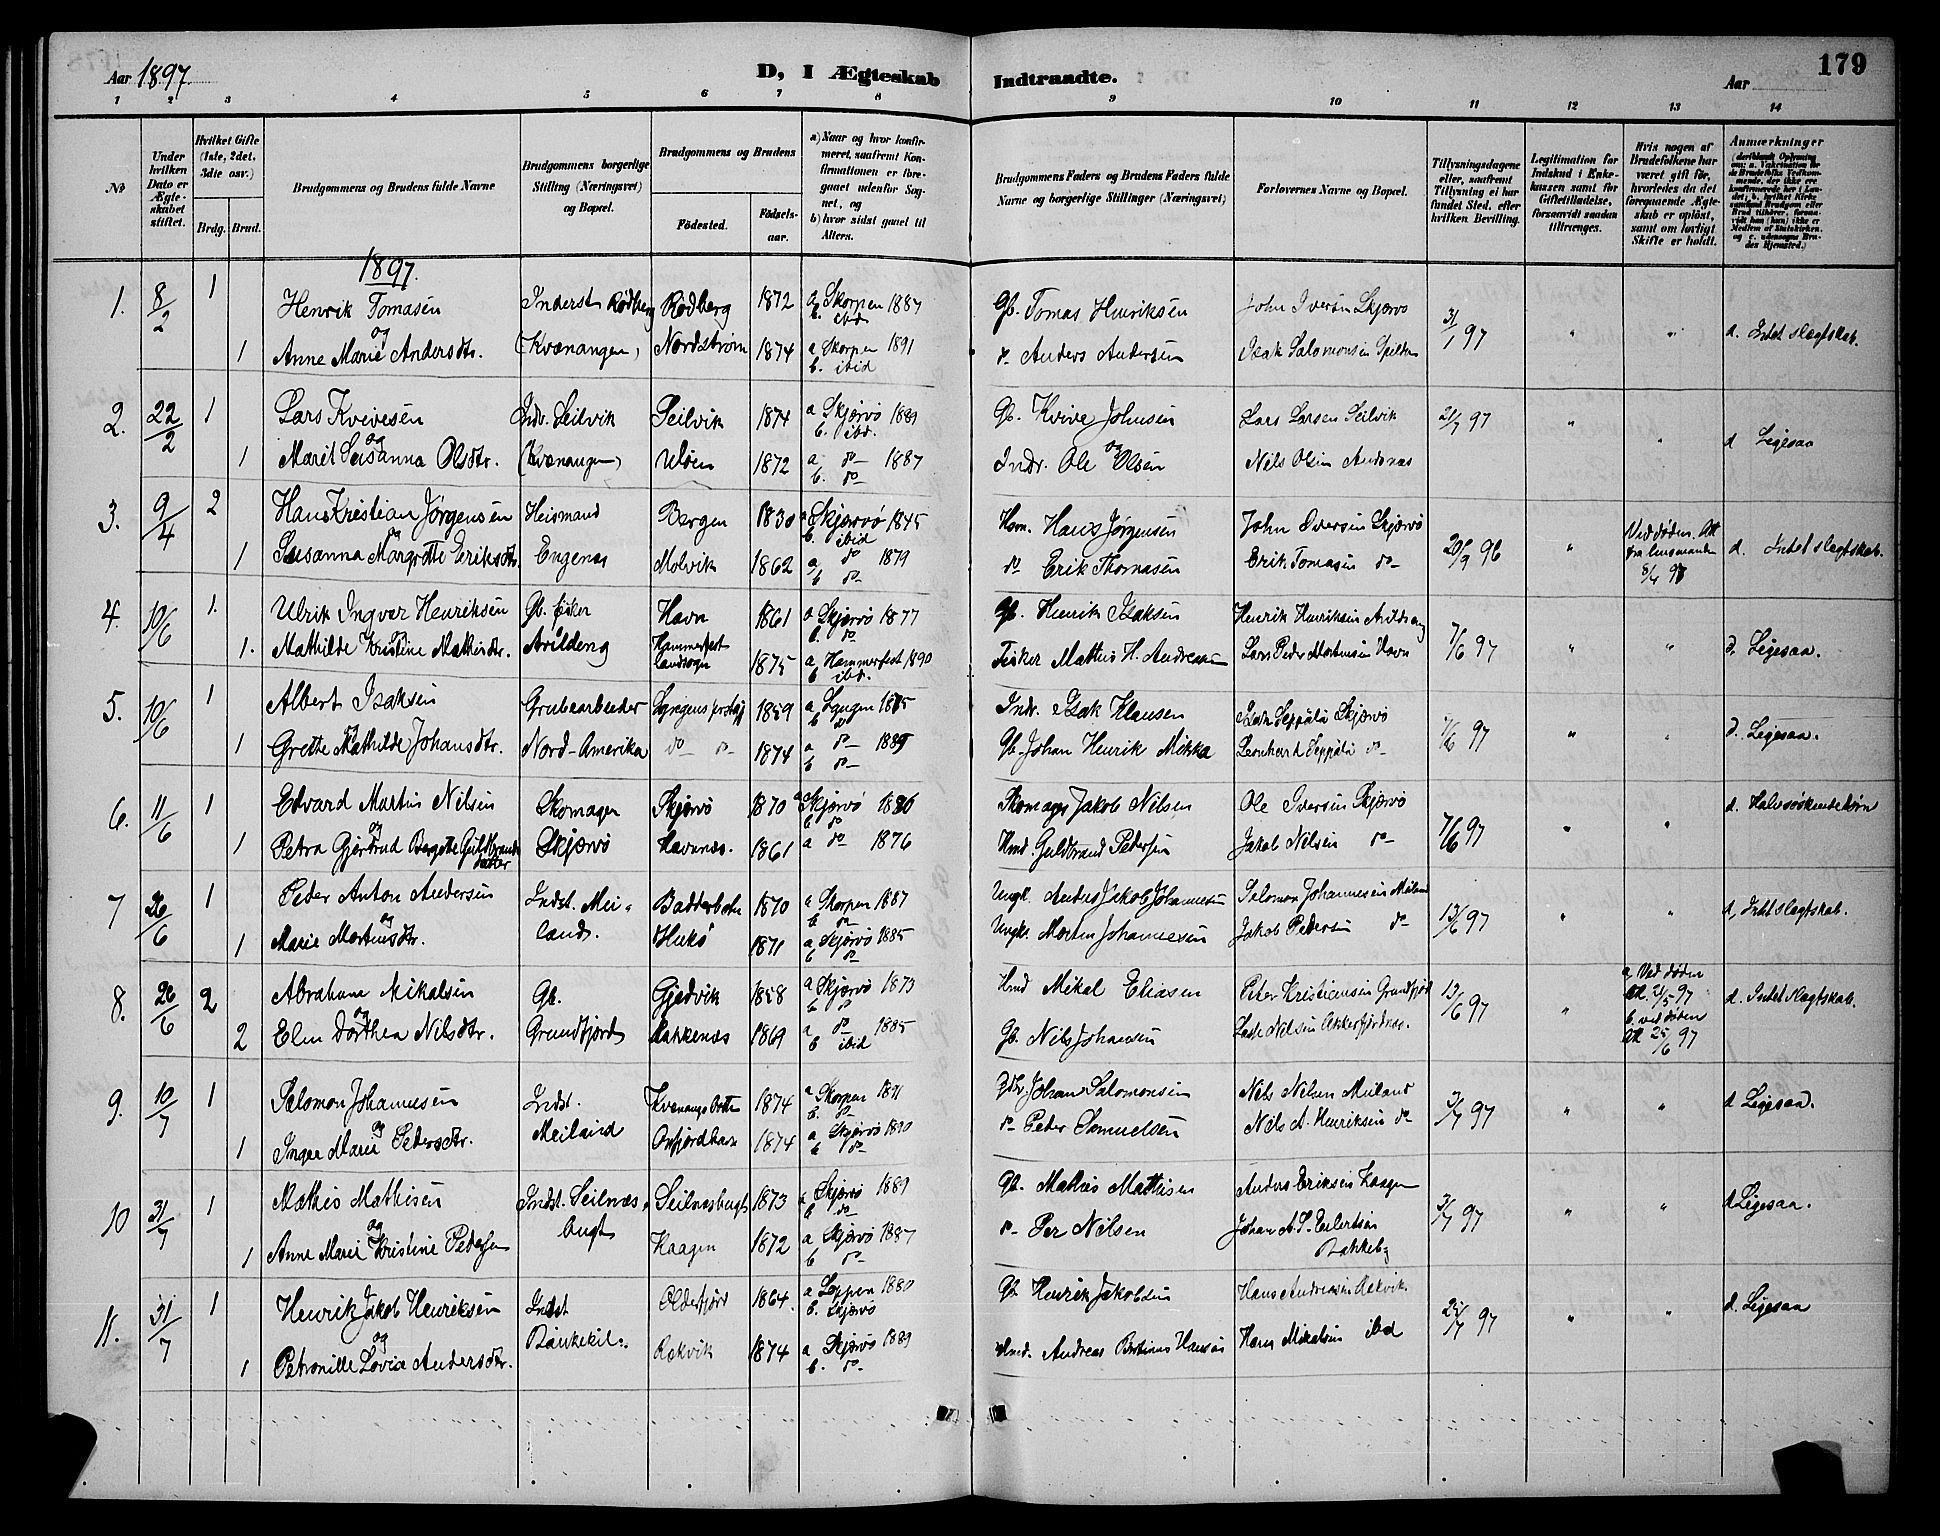 179
Aar 1897. D, I Ægteskab Indtraadte. Aar
1 2 3 4 5 6 7 8 9 10 11 12 13 14
No
Under hvilken Dato er Ægteskabet stiftet.
Hvilket Gifte (1ste, 2det, 3die osv.)
Brdg. Brud.
Brudgommens og Brudens fulde Navne
Brudgommens borgerlige Stilling (Næringsvei) og Bopæl.
Brudgommens og Brudens
Fødested. Fødselsaar.
a) Naar og hvor konfirmeret, saafremt Konfirmationen er foregaaet udenfor Sognet, og
b) hvor sidst gaaet til Alters.
Brudgommens Faders og Brudens Faders fulde Navne og borgerlige Stillinger (Næringsvei)
Forlovernes Navne og Bopæl.
Tillysningsdagene eller, saafremt Tillysning ei har fundet Sted, efter hvilken Bevilling.
Legitimation for Indskud i Enkekassen samt for Giftetilladelse, forsaavidt saadan tiltrænges.
Hvis nogen af Brudefolkene har været gift før, hvorledes da det foregaaende Ægteskab er opløst, samt om lovligt Skifte er holdt.
Anmærkninger
1897.
1. 8/2 1 Henrik Tomasen Inderst Rødberg Rødberg 1872 a. Skorpen 1887 b. ibd Gb. Tomas Henriksen John Iversen Skjærvö 31/1 97 " " d. Intet slægtskab.
og
1 Anne Marie Andersdtr. (Kvænangen) Nordstrøm 1874 a Skorpen 1891 b. ibid do Anders Andersen Isak Salomonsen Spilden
2. 22/2 1 Lars Kvivesen Indr. Seilvik Seilvik 1874 a Skjærvö 1889 b. ibd. Gb. Kvive Johnsen Lars Larsen Seilvik 97 " " d Ligesaa
og
1 Marit Susanna Olsdtr. (Kvænangen) Uløen 1872 a do 1887 b. do Indr. Ole Olsen Nils Olsen Andsnæs
3. 9/4 2 Hans Kristian Jørgensen Huusmand Bergen 1830 a Skjærvö 1845 b. ibid Hsm. Hans Jørgensen John Iversen Skjærvö 20/9 96 " Ved døden. Att fra lensmanden 8/4 97 d. Intet slægtskab.
og
1 Susanna Margrethe Eriksdtr. Engenæs Molvik 1862 a do 1879 b do do Erik Thomasen Erik Tomasen do
4. 10/6 1. Ulrik Ingver Henriksen Gb. fisker Havn 1861 a Skjærvö 1877 b. do Gb. Henrik Isaksen Henrik Henriksen Arildeng 7/6 97 " " d. Ligesaa.
1. Mathilde Kristine Mathisdtr. Arildeng Hammerfest landsogn 1875 a Hammerfest 1890 b ibd. Fisker Mathis H. Andreasen Lars Peder Mortensen Havn
5. 10/6 1 Albert Isaksen Grubearbeider Lyngens prstgj 1859 a Lyngen 1875 b do Indr. Isak Klausen Isak Seppälä Skjærvö 7/6 97 " " d. Ligesaa.
og
1 Grette Mathilde Johansdtr. Nord-Amerika do do 1874 a do 1889 b do Gb. Johan Henrik Mikka Leonhard Seppälä do
6. 11/6 1 Edvard Martin Nilsen Skomager Skjærvö 1870 a Skjærvö 1886 b do Skomager Jakob Nilsen Ole Iversen Skjærvö 7/6 97 " " d. Halvsøskendebørn
og
1 Petra Gjertrud Bergette Guldbrandsdatter Skjærvö Havnnæs. 1861 a do 1876 Hmd. Guldbrand Pedersen Jakob Nilsen do
7 26/6 1 Peder Anton Andersen Indst. Meiland. Badderbotn 1870 a Skorpen 1887 b do Ungk. Anders Jakob Johannesen Salomon Johannesen Meiland 13/6 97 " " d, Intet slægtskab.
og
1 Marie Mortensdtr. Hukö 1871 a, Skjærvö 1885 b do Ungk. Morten Johannesen Jakob Pedersen do
8. 26/6 2 Abraham Mikalsen Gb. Gjødvik 1858 a Skjærvö 1873 b do Hmd Mikal Eliasen Peter Kristiansen Grundfjord 13/6 97 " a, Ved døden Att. 21/5 97 b. ved døden Att 25/6 97 d. Intet slægtskab.
og
2 Elen Dorthea Nilsdtr. Grundfjord Rakkenæs 1869 a do 1885 b ibid Gb. Nils Johansen Lasse Nilsen Akkarfjordnæs.
9. 10/7 1 Salomon Johannesen Indst. Meiland Kvænangsbotten 1874 a Skorpen 1891 b. do Johan Salomonsen Nils Nilsen Meiland 3/7 97 " " d Ligesaa.
og
1 Inger Marie Pedersdtr. Oxfjordhavn 1874 a Skjærvö 1890 b do do Peder Samuelsen Nils A. Henriksen do
10 31/7 1 Mathis Mathisen Indst. Seilnæsbugt Seilnæsbugt 1873 a Skjærvö 1889 b do Gb. Mathis Mathisen Anders Eriksen Kaagen 3/7 97 " " d Ligesaa.
og
1 Anne Marie Kristine Pedersen Kaagen 1872 a Skjærvö 1887 b do do Per Nilsen Johan A. S. Eilertsen Bakkeby
11. 31/7 1 Henrik Jakob Henriksen Indst Bankekeil. Olderfjord 1864. a Loppen 1880 b. Skjærvö Gb. Henrik Jakobsen Hans Andreasen Rekvik 25/7 97 " " d. Ligesaa
og
1 Petronille Lovise Andersdtr. Rekvik 1874 a Skjærvö 1889 b. do Hmd. Andreas Bertinus Hansen Hans Mikalsen ibd